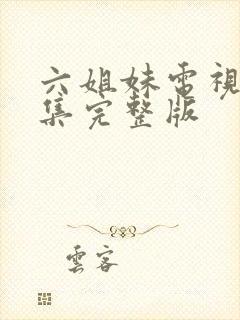 六姐妹电視
集完整版
雲客